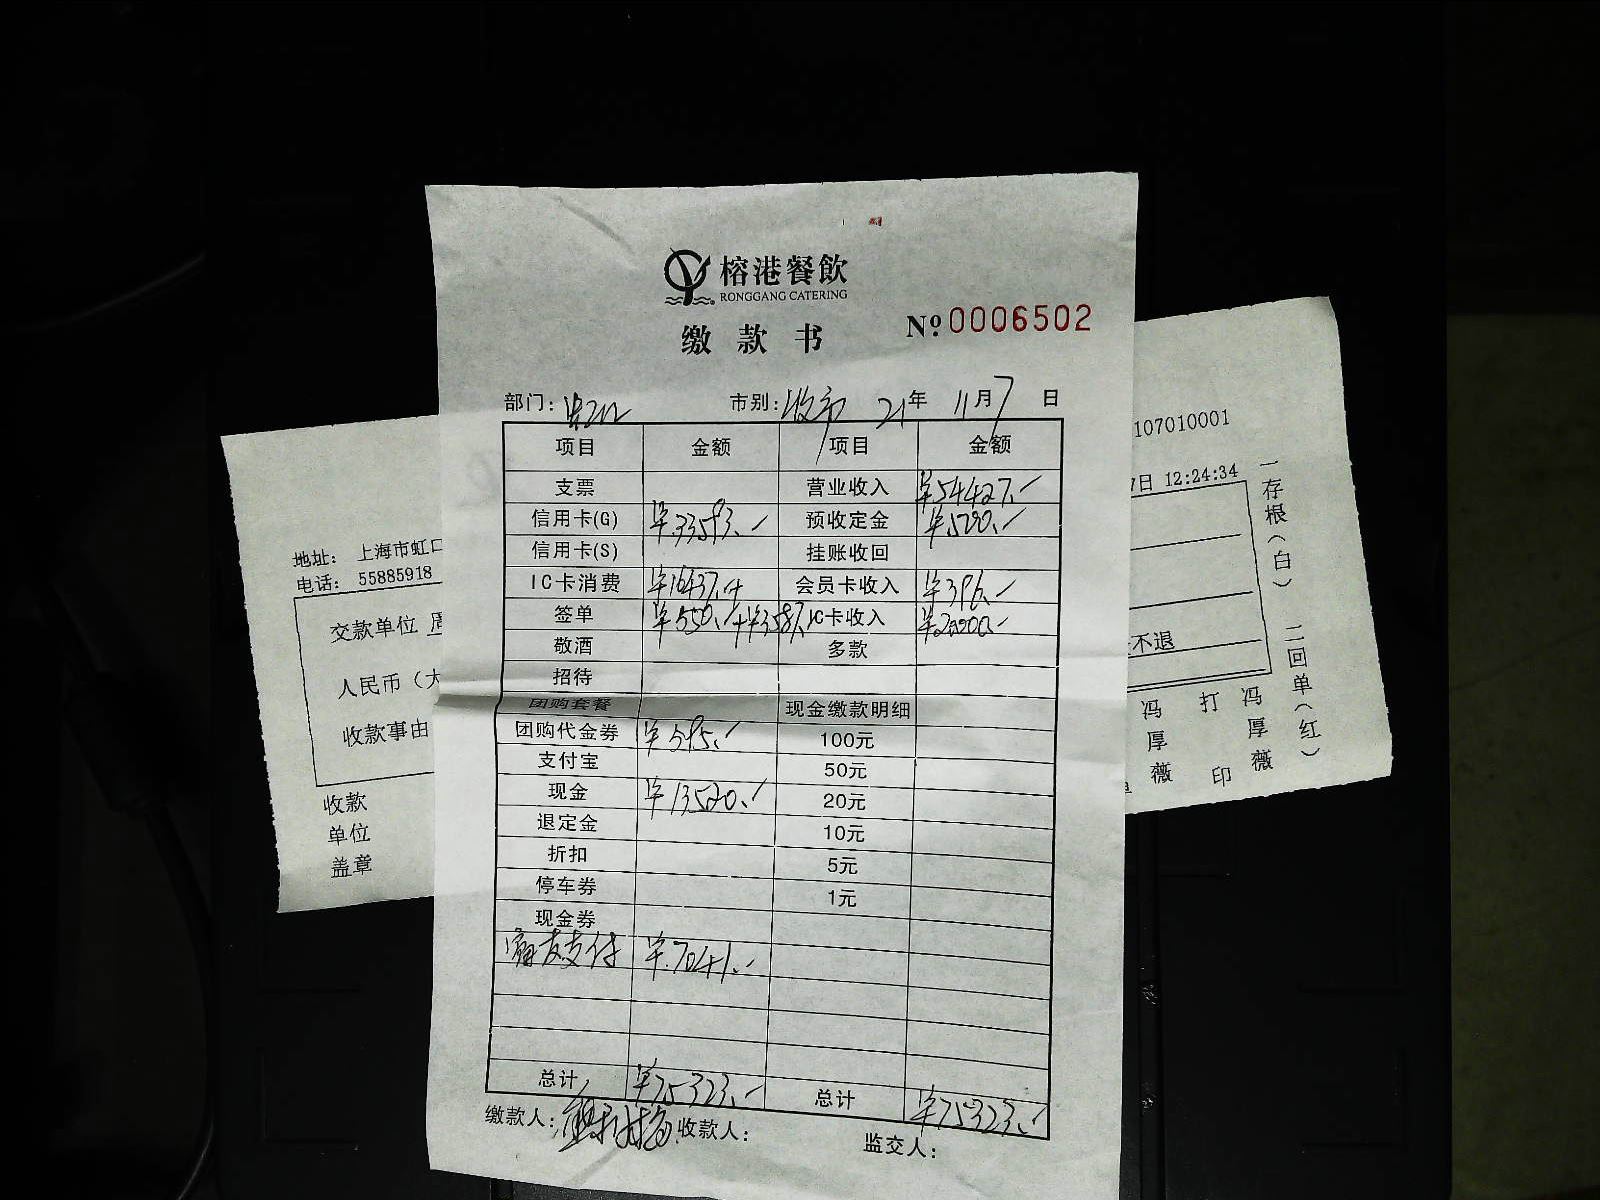 榕港餐飲
RONGGANG CATERING
缴款书
№ 0006502
部门: 市别: 收市 21年 11月 7日
项目 金额 项目 金额
支票 营业收入 ¥54427.-
信用卡(G) ¥33593.- 预收定金 ¥500.-
信用卡(S) 挂账收回
IC卡消费 ¥16437.- 会员卡收入 ¥396.-
签单 ¥550.-+¥3587.- IC卡收入 ¥20000.-
敬酒 多款
招待
团购套餐 现金缴款明细
团购代金券 ¥595.- 100元
支付宝 50元
现金 ¥13520.- 20元
退定金 10元
折扣 5元
停车券 1元
现金券
支付 ¥7041.-
总计 ¥75323.- 总计 ¥75323.-
缴款人: 收款人: 监交人:
地址: 上海市虹口
电话: 55885918
交款单位 周
人民币（大
收款事由
收款
单位
盖章
107010001
7日 12:24:34
不退
一存根（白） 二回单（红）
冯厚薇
打印
冯厚薇